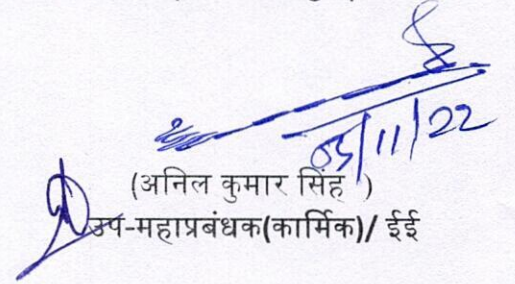 05/11/22
(अनिल कुमार सिंह )
उप-महाप्रबंधक(कार्मिक)/ ईई